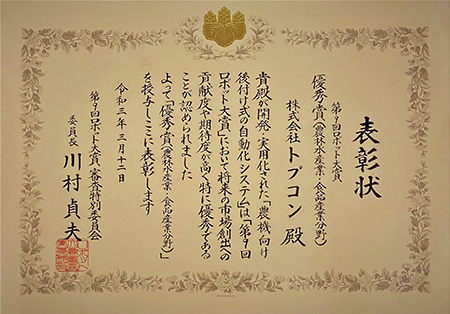 表彰状
第9回ロボット大賞
優秀賞(農林水産業・食品産業分野)
株式会社トプコン 殿
貴殿が開発・実用化された「農機向け
後付け式の自動化システム」は「第9回
ロボット大賞」において将来の市場創出への
貢献度や期待度が高く特に優秀である
ことが認められました
よって「優秀賞(農林水産業・食品産業分野)」
を授与しここに表彰します
令和三年三月十二日
第9回ロボット大賞審査特別委員会
委員長 川村貞夫